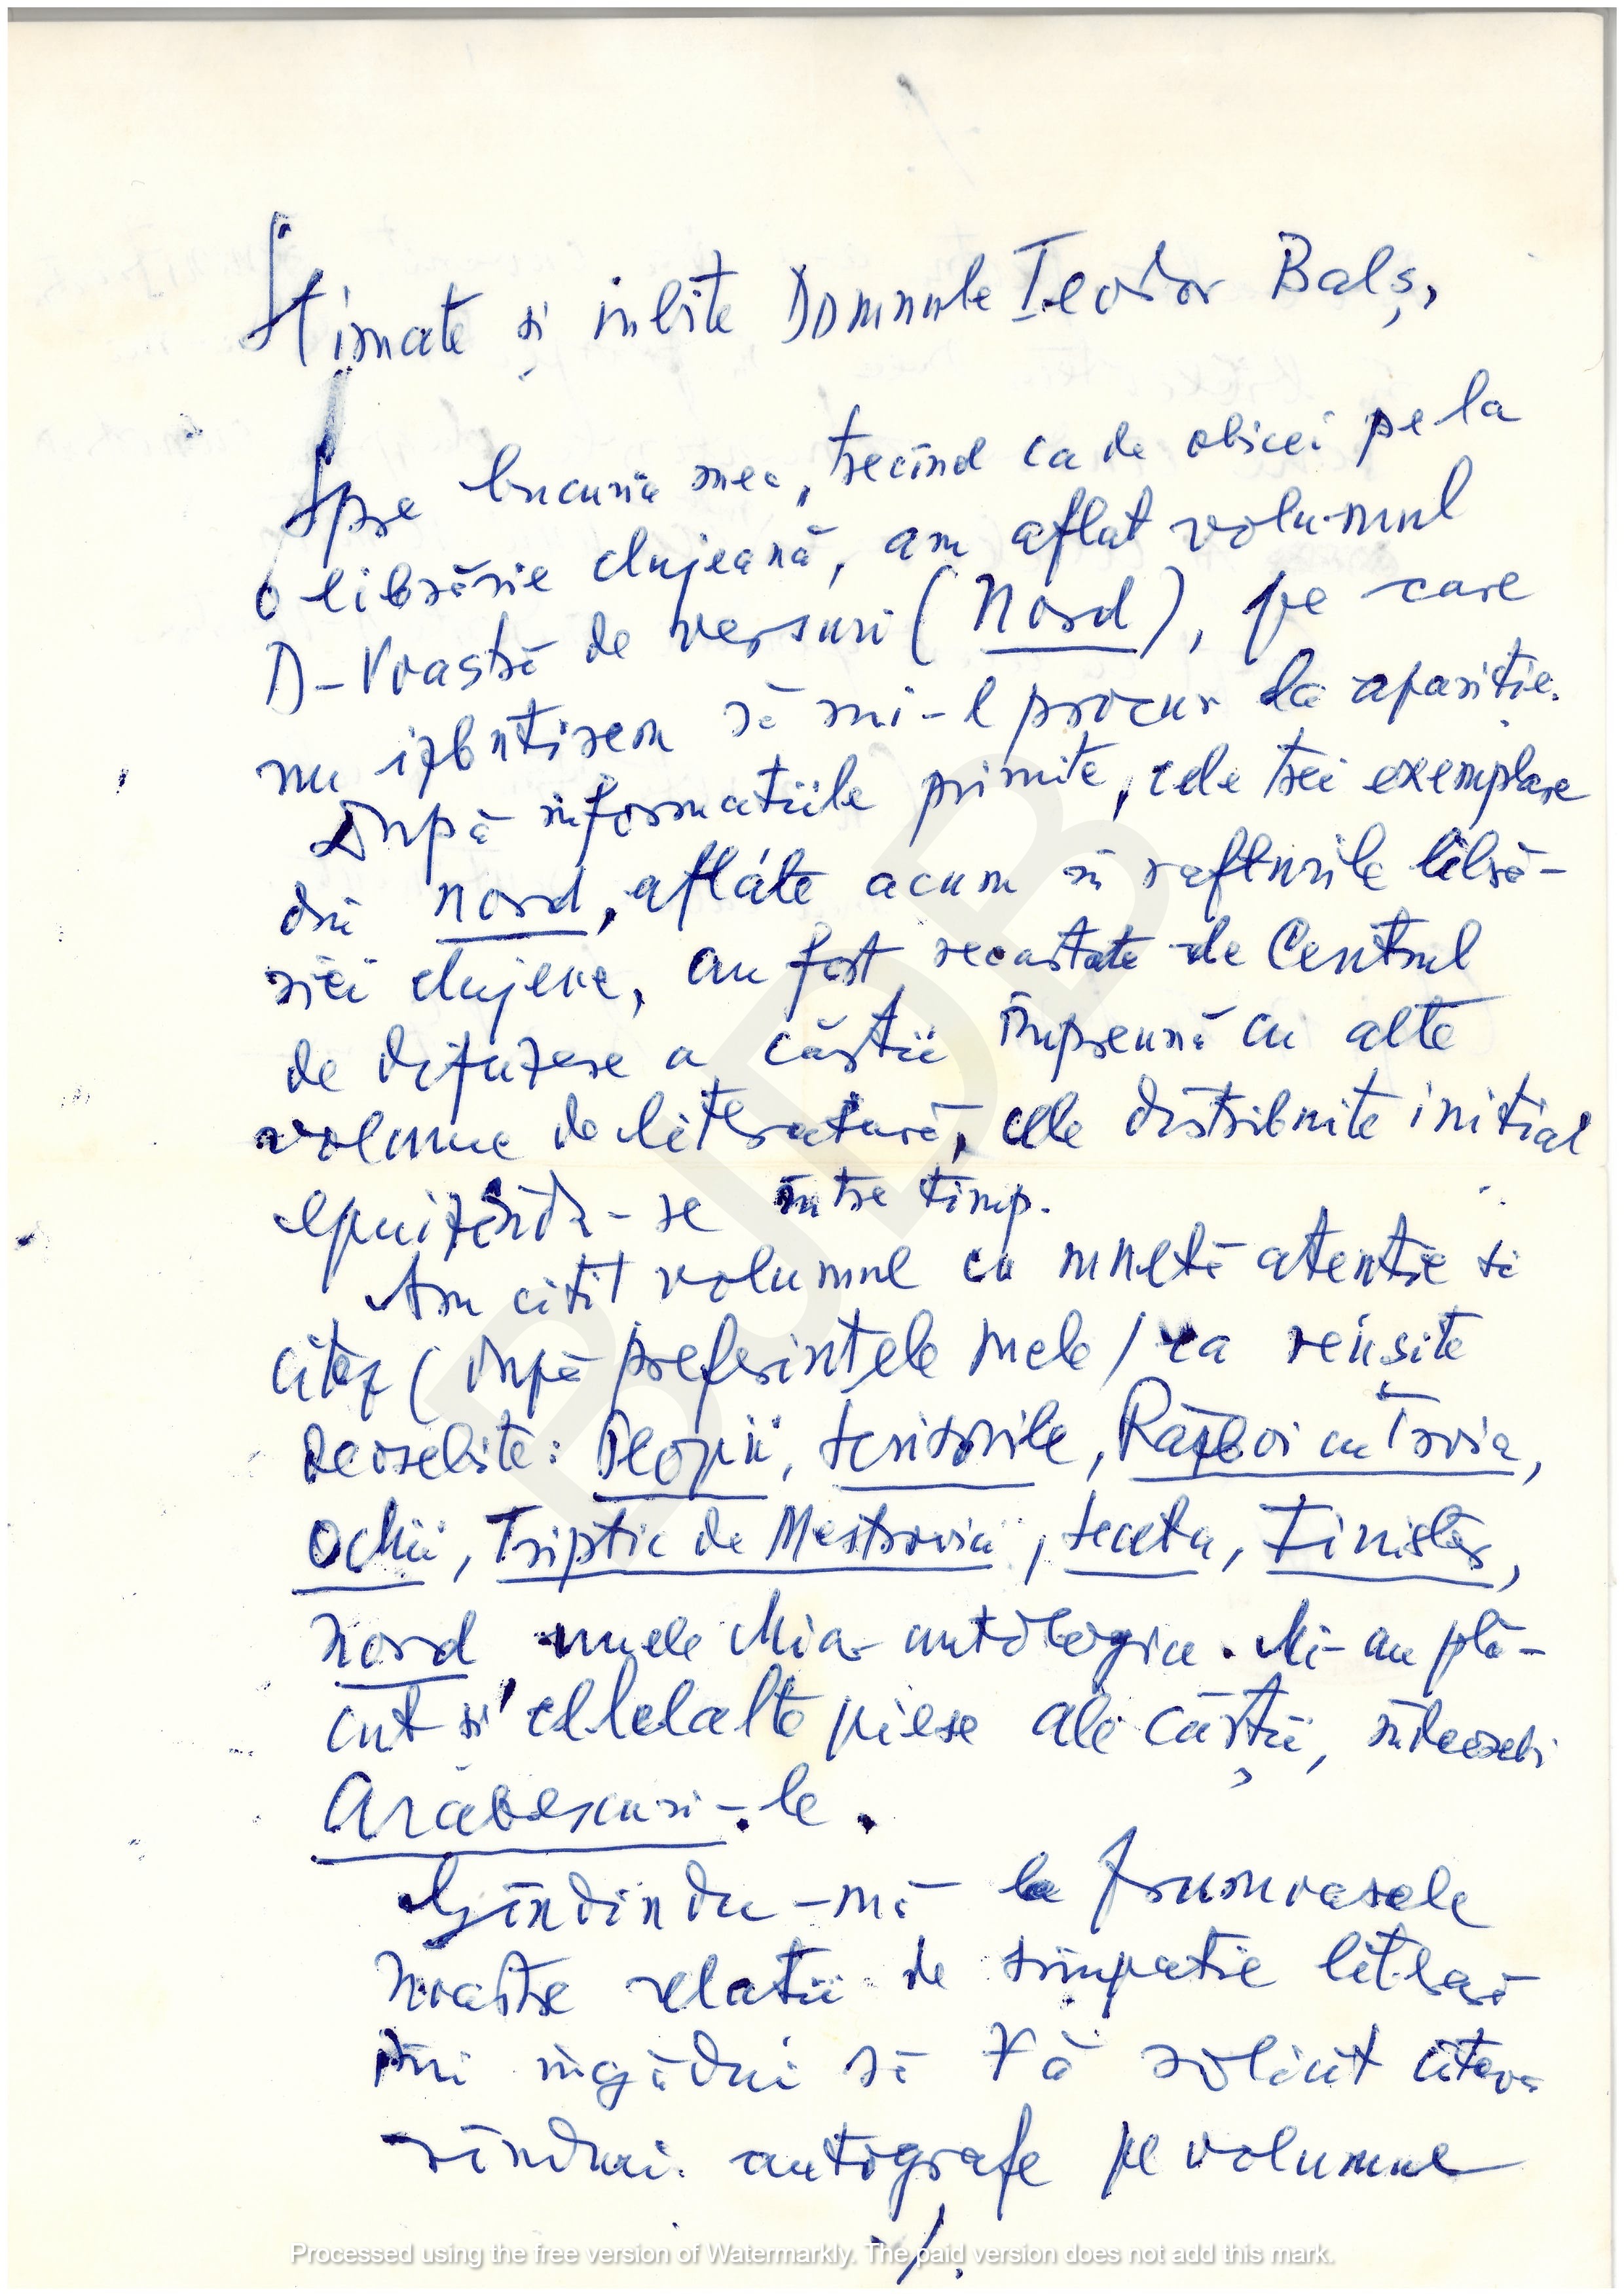 Stimate și iubite Domnule Teodor Balș,
Spre bucuria mea, trecînd ca de obicei pe la
o librărie clujeană, am aflat volumul
D-Voastră de versuri (Nord), pe care
nu izbutisem să mi-l procur la apariție.
După informațiile primite, cele trei exemplare
din Nord, aflate acum în rafturile libră-
riei clujene, au fost recartate de Centrul
de difuzare a cărții împreună cu alte
volume de literatură, cele distribuite inițial
epuizîndu-se între timp.
Am citit volumul cu multă atenție și
citez (după preferințele mele) ca reușite
deosebite: Plopii, Scrisorile, Război cu Troia,
Ochii, Triptic de Mestrovici, Seceta, Finister,
Nord unele chiar antologice. Mi-au plă-
cut și celelalte piese ale cărții, îndeosebi
Arabescuri-le.
Gîndindu-mă la frumoasele
noastre relații de simpatie literară
îmi îngădui să Vă solicit cîteva
rînduri autografe pe volumul
./.
BJDB
Processed using the free version of Watermarkly. The paid version does not add this mark.